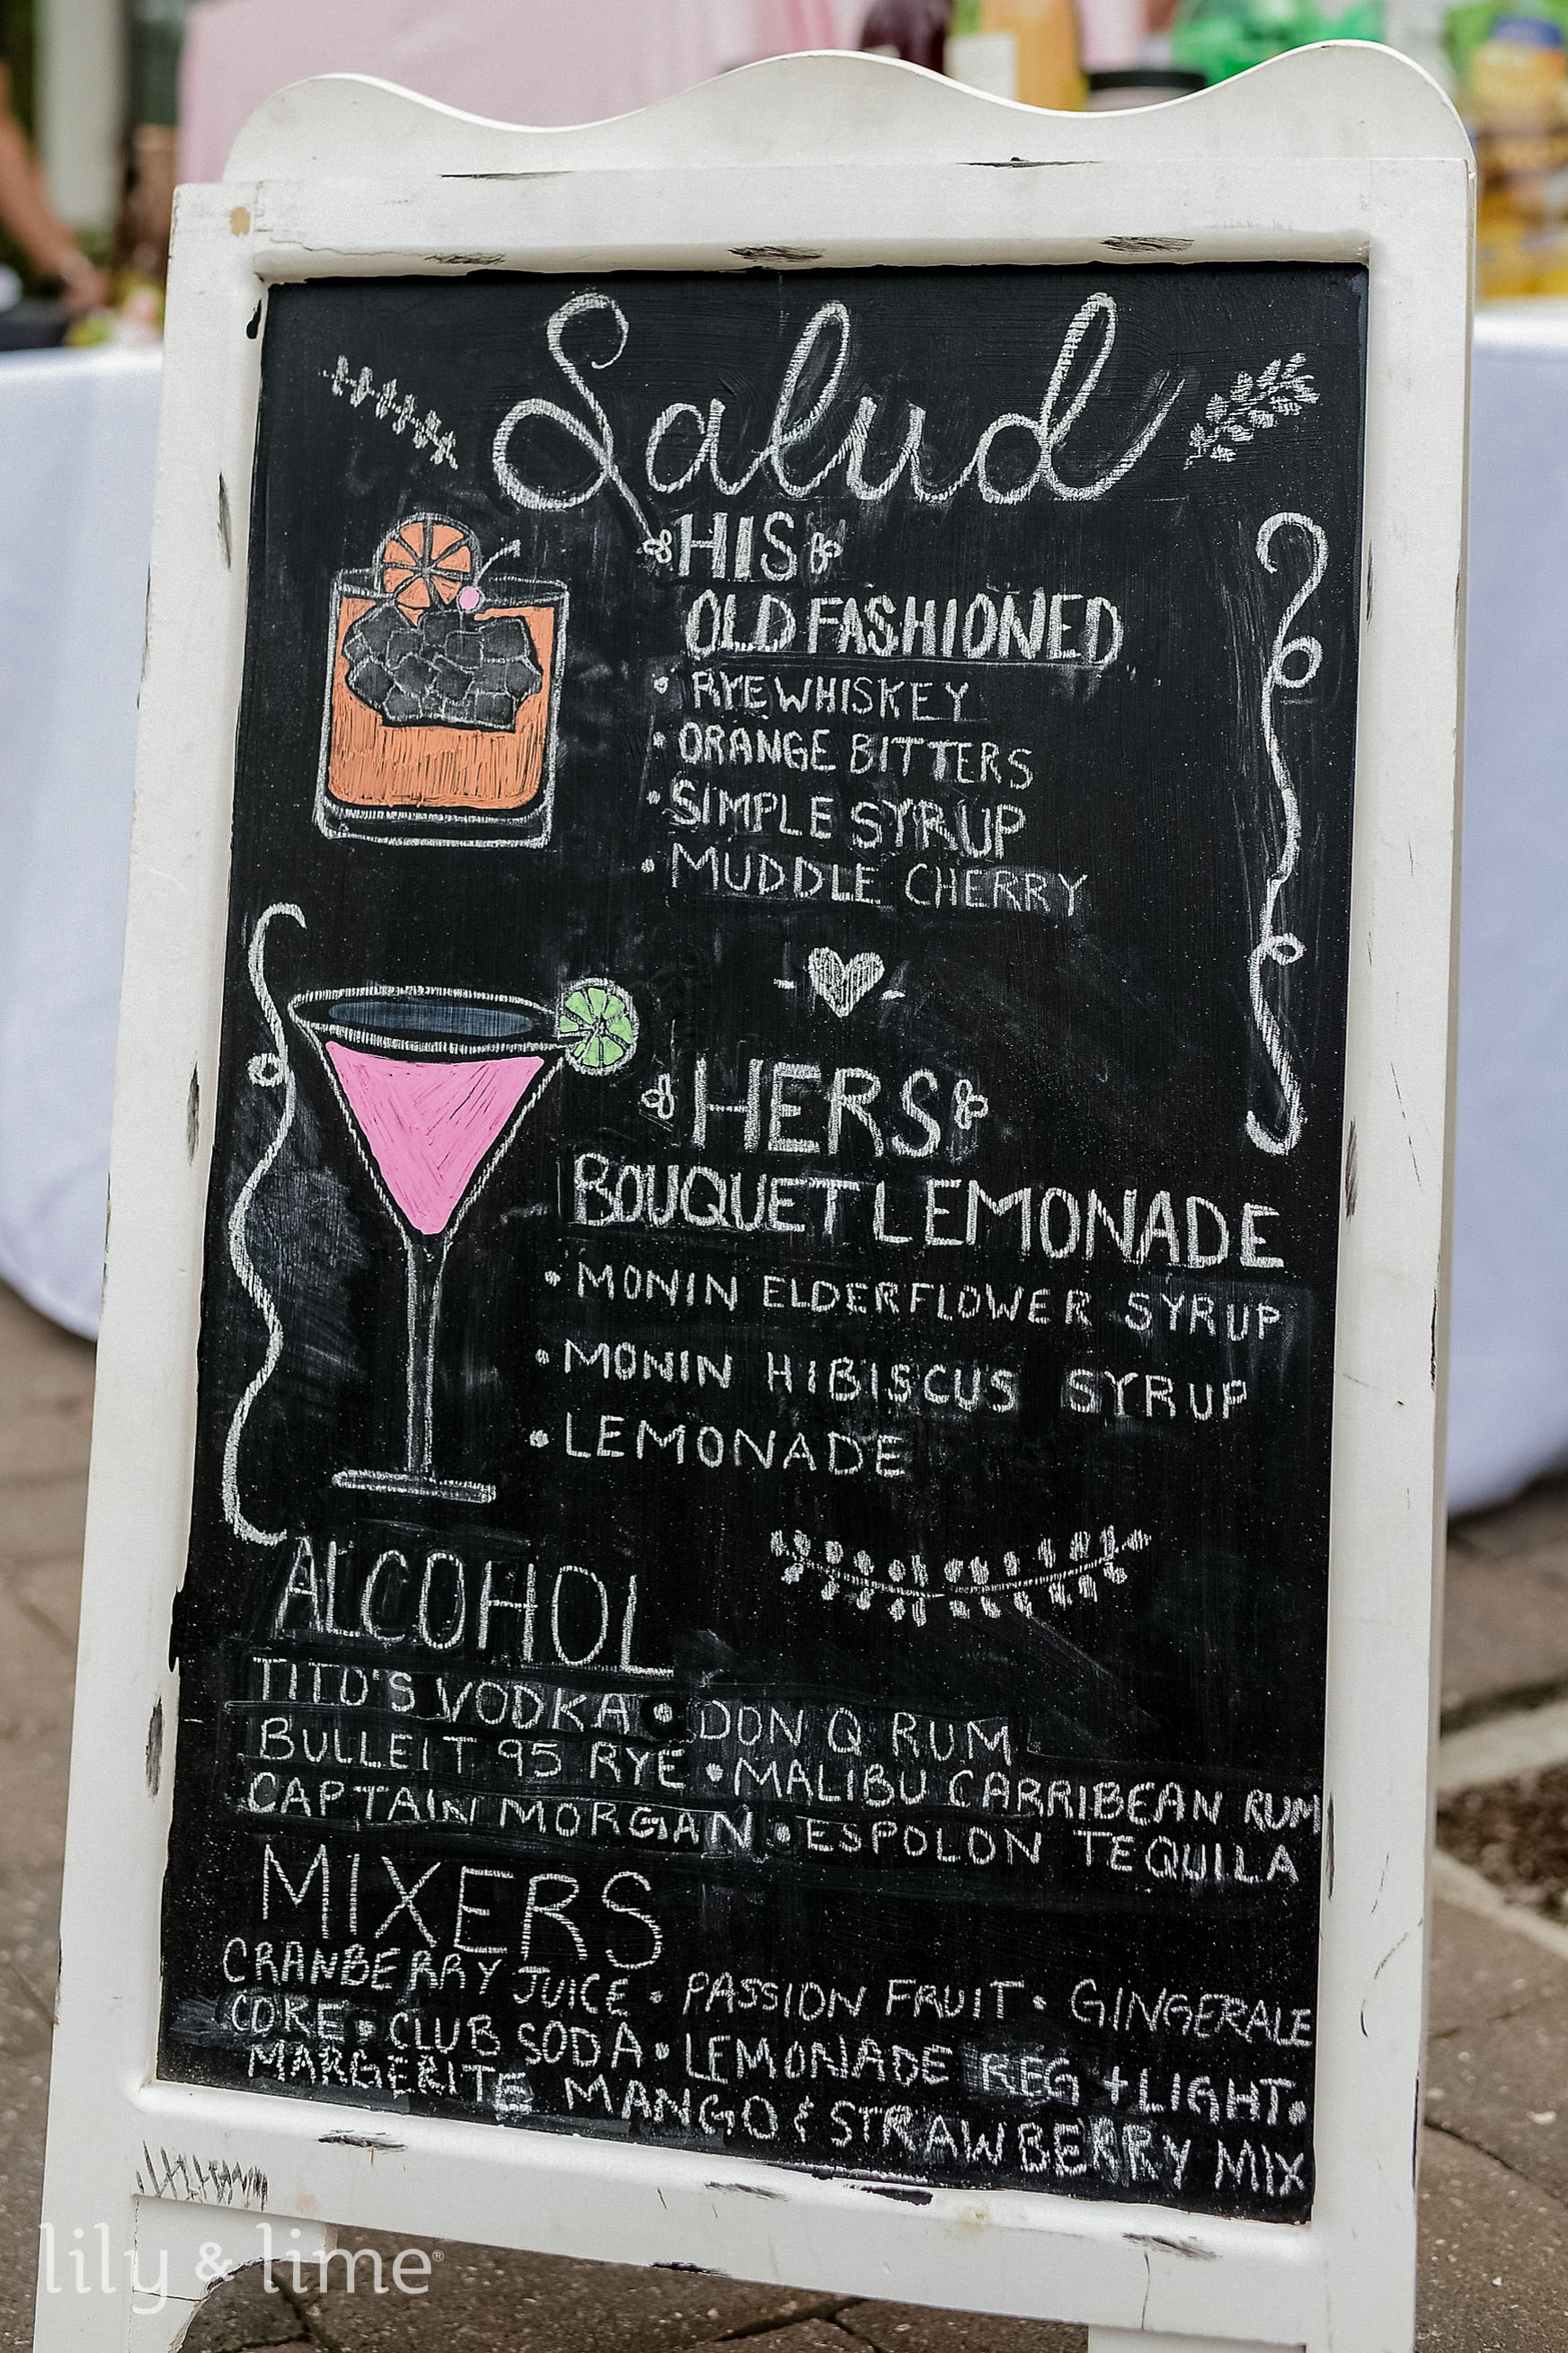 Salud
HIS
OLD FASHIONED
• RYE WHISKEY
• ORANGE BITTERS
• SIMPLE SYRUP
• MUDDLE CHERRY
HERS
BOUQUET LEMONADE
• MONIN ELDERFLOWER SYRUP
• MONIN HIBISCUS SYRUP
• LEMONADE
ALCOHOL
TITO'S VODKA • DON Q RUM
BULLEIT 95 RYE • MALIBU CARRIBEAN RUM
CAPTAIN MORGAN • ESPOLON TEQUILA
MIXERS
CRANBERRY JUICE • PASSION FRUIT • GINGERALE
COKE • CLUB SODA • LEMONADE REG + LIGHT •
MARGERITE MANGO & STRAWBERRY MIX
lily & lime®